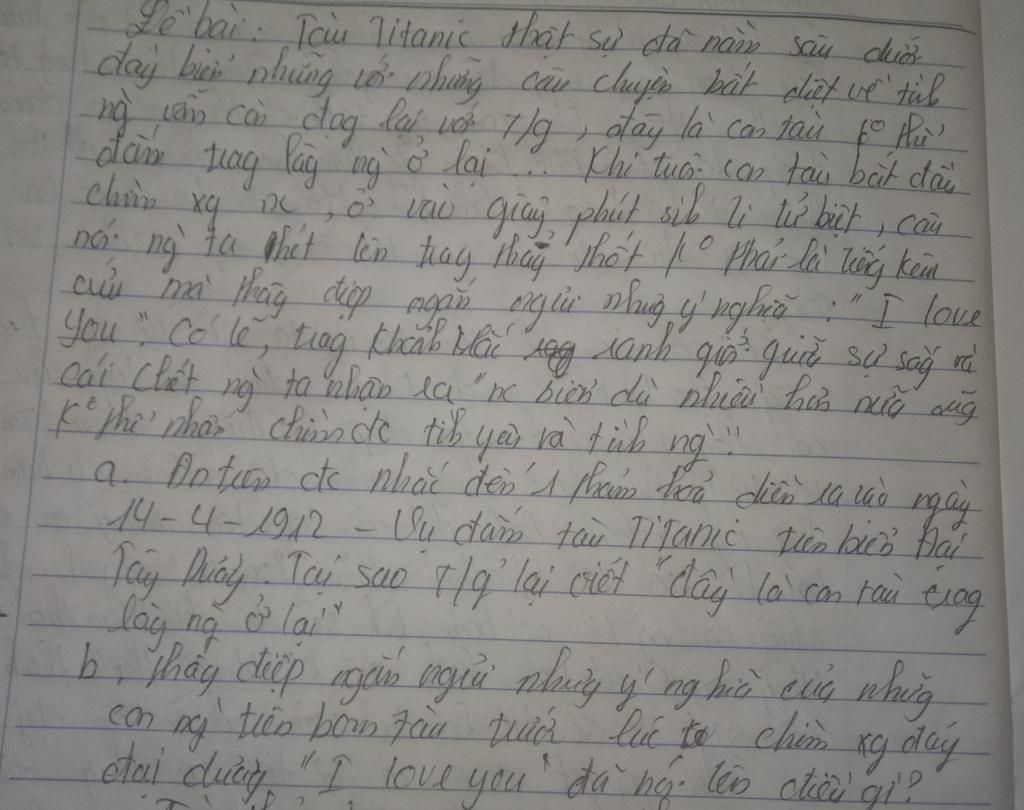 Đề bài: Tàu Titanic thật sự đã nằm sâu dưới
đáy biển nhưng với những câu chuyện bất diệt về tình
ng̀ vẫn còn đọg lại với T/g, đây là con tàu k° thể
đắm trog lòg ng̀ ở lại ... Khi tuôi con tàu bắt đầu
chìm xg nc, ở vào giây phút sih li tử biệt, câu
nói ng̀ ta thét lên hay thầg thốt k° phải là tiếng kêu
cứu mà thôg điệp ngắn ngủi nhưng ý nghĩa: "I love
you". Có lẽ, trog khoảnh khắc ranh giới giữa sự sốg và
cái chết ng̀ ta nhận ra "nc biển dù nhiều hơn nữa cũg
k° thể nhấn chìm đc tìh yêu và tình ng̀"
a. Đo trên đc nhắc đến 1 thảm hoạ diễn ra vào ngày
14-4-1912 - Vụ đắm tàu Titanic trên biển Đại
Tây Dương. Tại sao T/g lại viết "đây là con tàu trog
lòg ng̀ ở lại"
b, thôg điệp ngắn ngủi nhưng ý nghĩa của nhữg
con ng̀ trên boong tàu trước lúc chìm xg đáy
đại dương "I love you" đã nói lên điều gì?